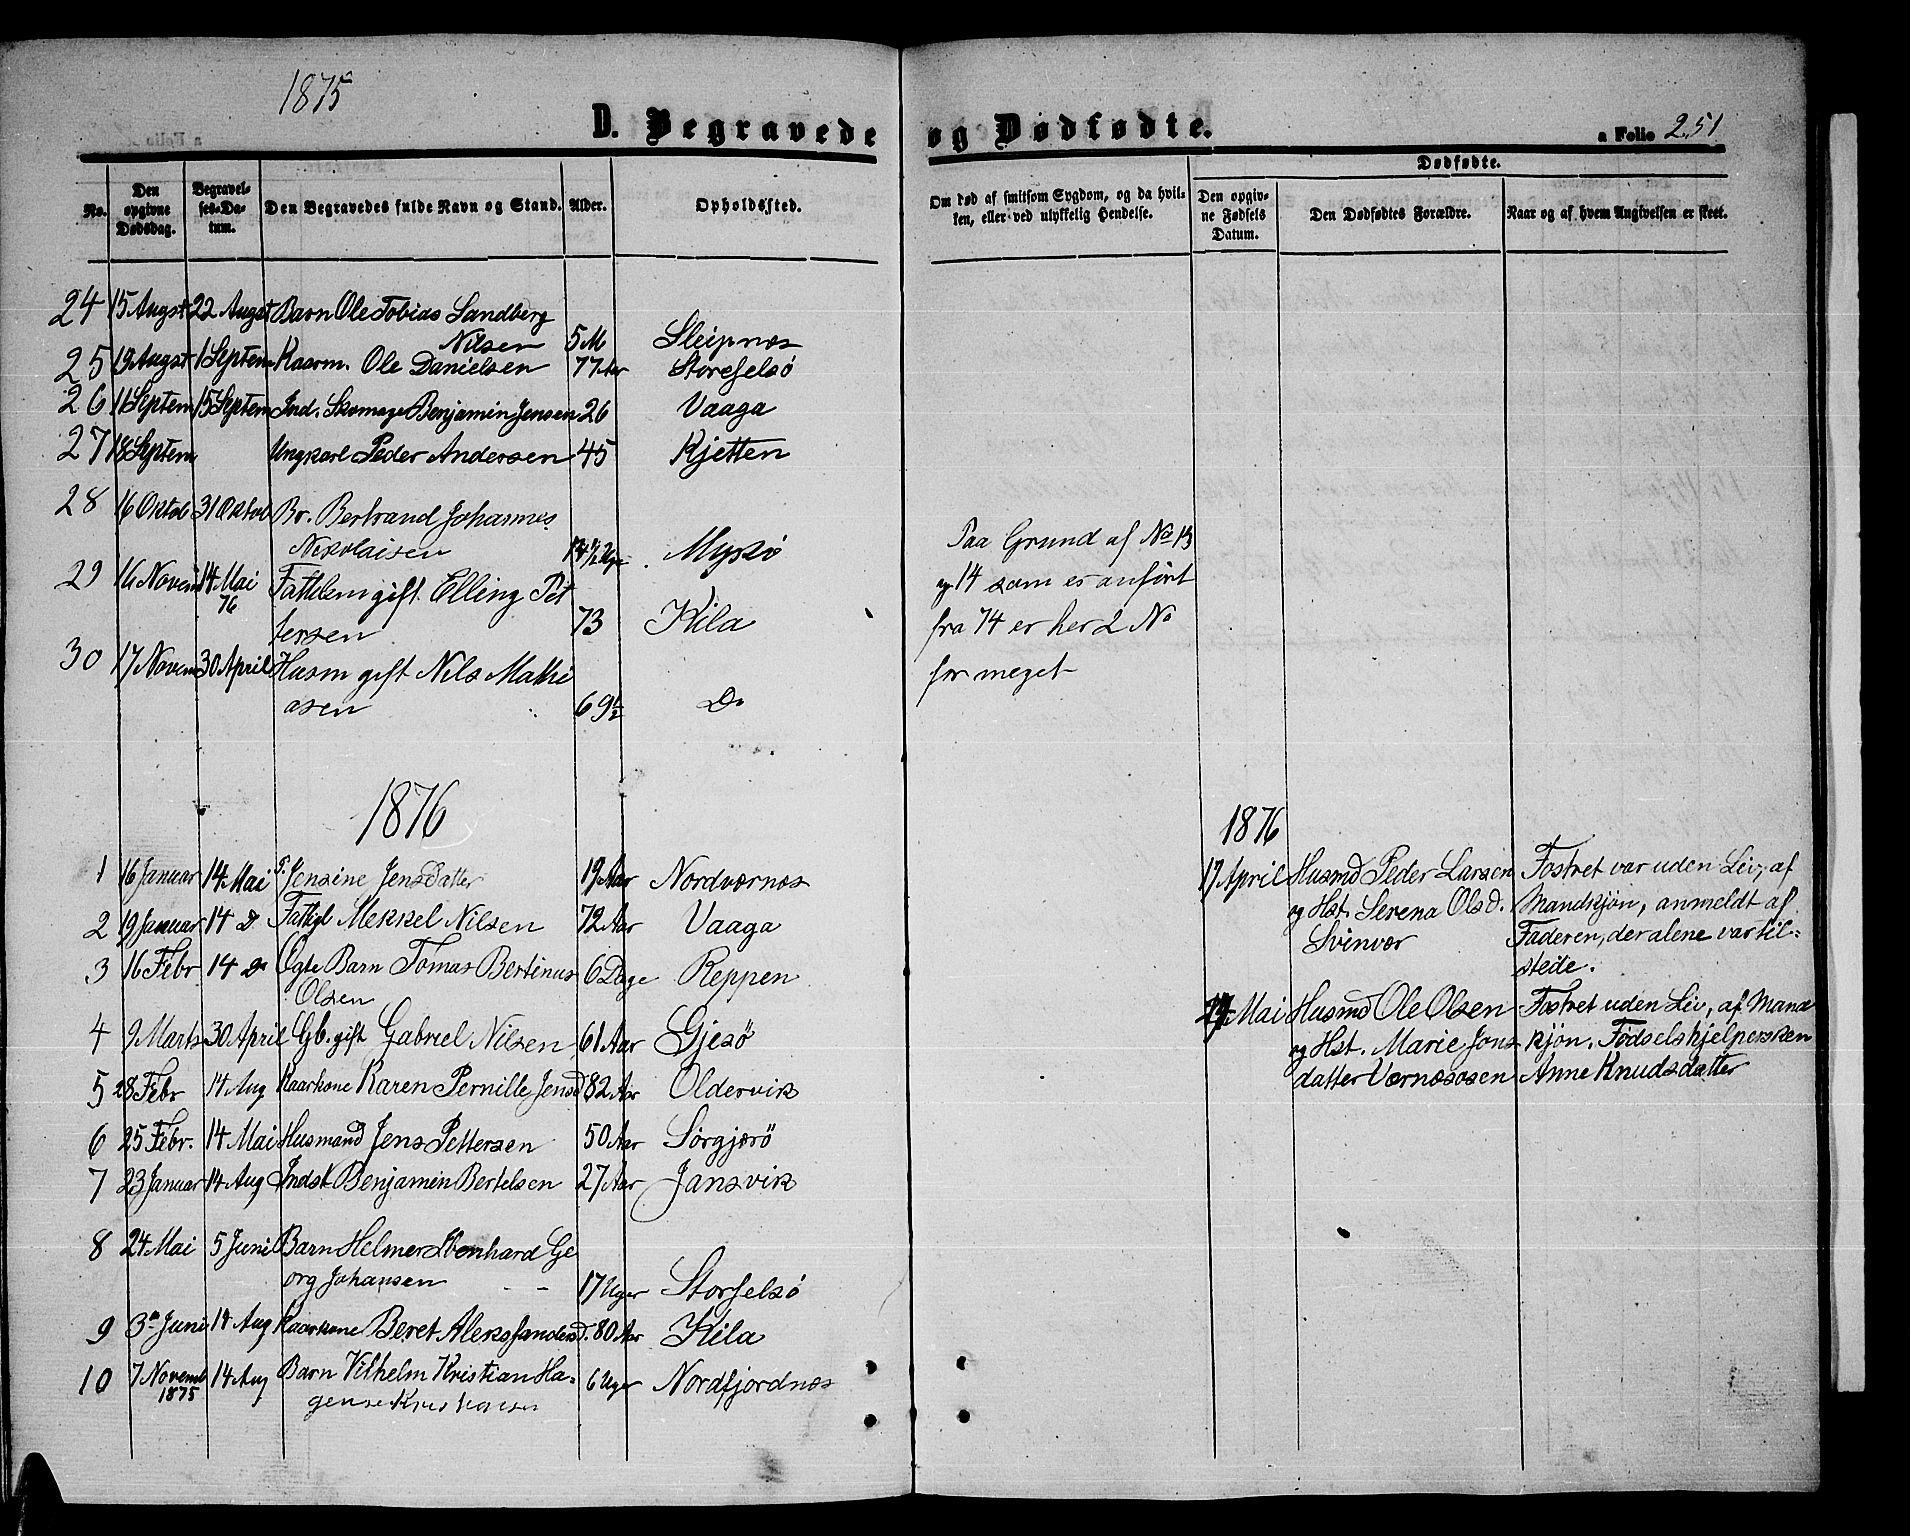 1875
D. Begravede og Dødfødte.
a Folio 251
No.
Den opgivne Dødsdag.
Begravelses-Datum.
Den Begravedes fulde Navn og Stand.
Alder.
Opholdssted.
Om død af smitsom Sygdom, og da hvilken, eller ved ulykkelig Hendelse.
Dødfødte.
Den opgivne Fødsels Datum.
Den Dødfødtes Forældre.
Naar og af hvem Angivelsen er skeet.
24 15 Augst 22 Augst Barn Ole Tobias Sandberg
Nilsen 5 M Sleipnæs
25 19 Augst 1 Septem Kaarm. Ole Danielsen 77 Aar Storeselsö
26 11 Septem 15 Septem Ind. Skomage Benjamin Jensen 26 Vaaga
27 18 Septem Ungkarl Peder Andersen 45 Kjetten
28 16 Oktob 31 Oktob Br. Bertrand Johannes
Nikolaisen 14 1/2 Uge Myskö
29 16 Novem 14 Mai 76 Fattilem gift Elling Pet
tersen 73 Kila
30 17 Novem 30 April Husm gift Nils Mathi
asen 69 1/2 Do
Paa Grund af No 13
og 14 som er anfört
fra 74 er her 2 No
for meget
1876
1 16 Januar 14 Mai P. Jensine Jensdatter 19 Aar Nordværnes
2 19 Januar 14 D Fattigl Mekkel Nilsen 72 Aar Vaaga
3 16 Febr 14 Do Ægte Barn Tomas Bertinus 6 Dage Reppen
Olsen
4 9 Marts 30 April Gb. gift Gabriel Nilsen 61 Aar Gjesö
5 28 Febr 14 Aug Kaarkone Karen Pernille Jensd 82 Aar Oldervik
6 25 Febr. 14 Mai Husmand Jens Pettersen 50 Aar Sörgjærö
7 23 Januar 14 Aug Indst Benjamin Bertelsen 27 Aar Jansvik
8 24 Mai 5 Juni Barn Helmer Edenhard Ge
org Johansen 17 Uger Storselsö
9 3die Juni 14 Aug Kaarkone Beret Aleksandersd. 80 Aar Kila
10 7 Novemb 1875 14 Aug Barn Vilhelm Kristian Ha- 6 Uger Nordfjordnæs
gense Kristiansen
1876
17 April Husmd Peder Larsen
og Hst. Serena Olsd.
Svinvær
Fostret var uden Liv, af
Mandkjön, anmeldt af
Faderen, der alene var til-
stede.
Mai Husmd Ole Olsen
og Hst. Marie Jons
datter Værnæsosen
Fostret uden Liv, af Mand
kjön. Födselshjelpersken
Anne Knudsdatter